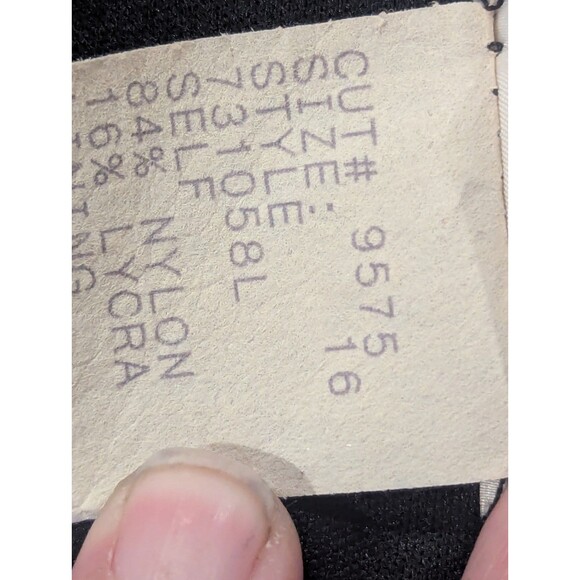 CUT# 9575
SIZE: 16
STYLE
731058L
SELF
84% NYLON
16% LYCRA